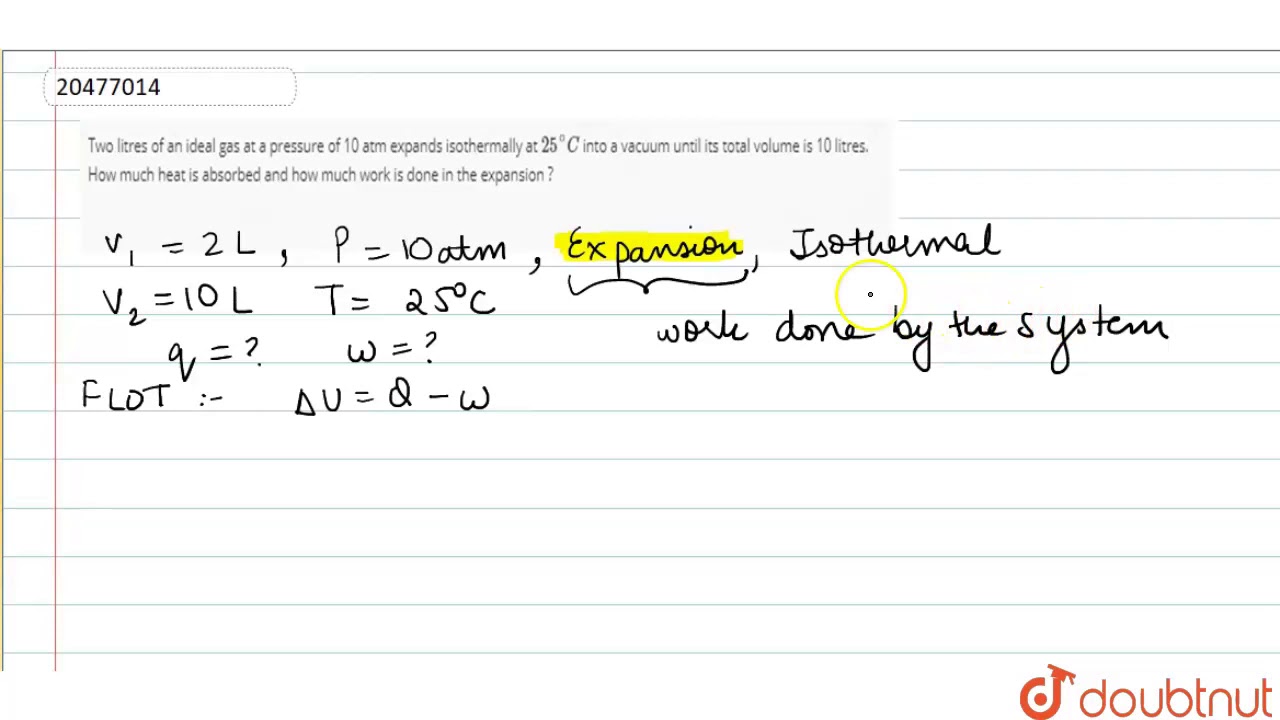 20477014
Two litres of an ideal gas at a pressure of 10 atm expands isothermally at 25°C into a vacuum until its total volume is 10 litres.
How much heat is absorbed and how much work is done in the expansion ?
V₁ = 2 L , P = 10 atm , Expansion, Isothermal
V₂ = 10 L T = 25°C
work done by the system
q = ? w = ?
FLOT :- ΔU = Q - w
doubtnut